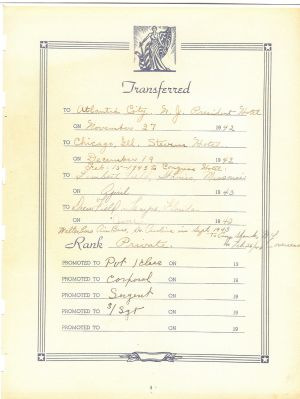 Transferred
TO Atlantic City, N. J. President Hotel
ON November 27 1942
TO Chicago, Ill. Stevens Hotel
ON December 19 1942
Feb. 15-1943 Congress Hotel
TO Missouri
ON April 1943
TO Drew Field - Tampa Florida
ON June 1943
in Sept 1943
Rank Private
PROMOTED TO Pvt 1/Class ON 19
PROMOTED TO Corporal ON 19
PROMOTED TO Sergent ON 19
PROMOTED TO S/Sgt ON 19
PROMOTED TO ON 19